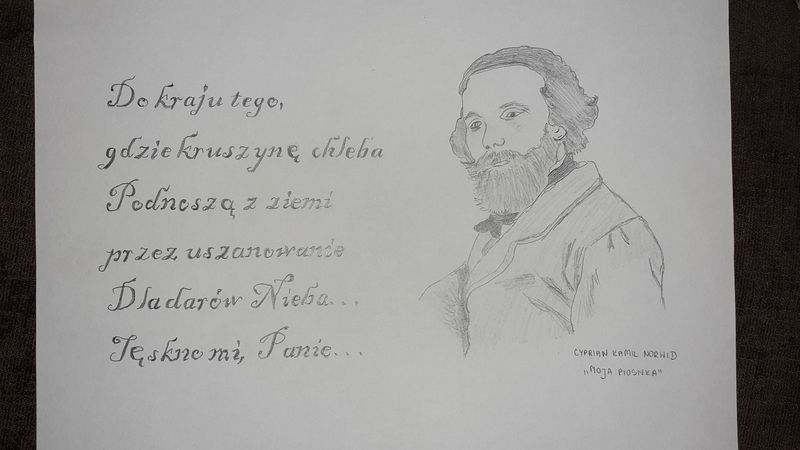 Do kraju tego,
gdzie kruszynę chleba
Podnoszą z ziemi
przez uszanowanie
Dla darów Nieba...
Tęskno mi, Panie...
CYPRIAN KAMIL NORWID
„MOJA PIOSNKA"